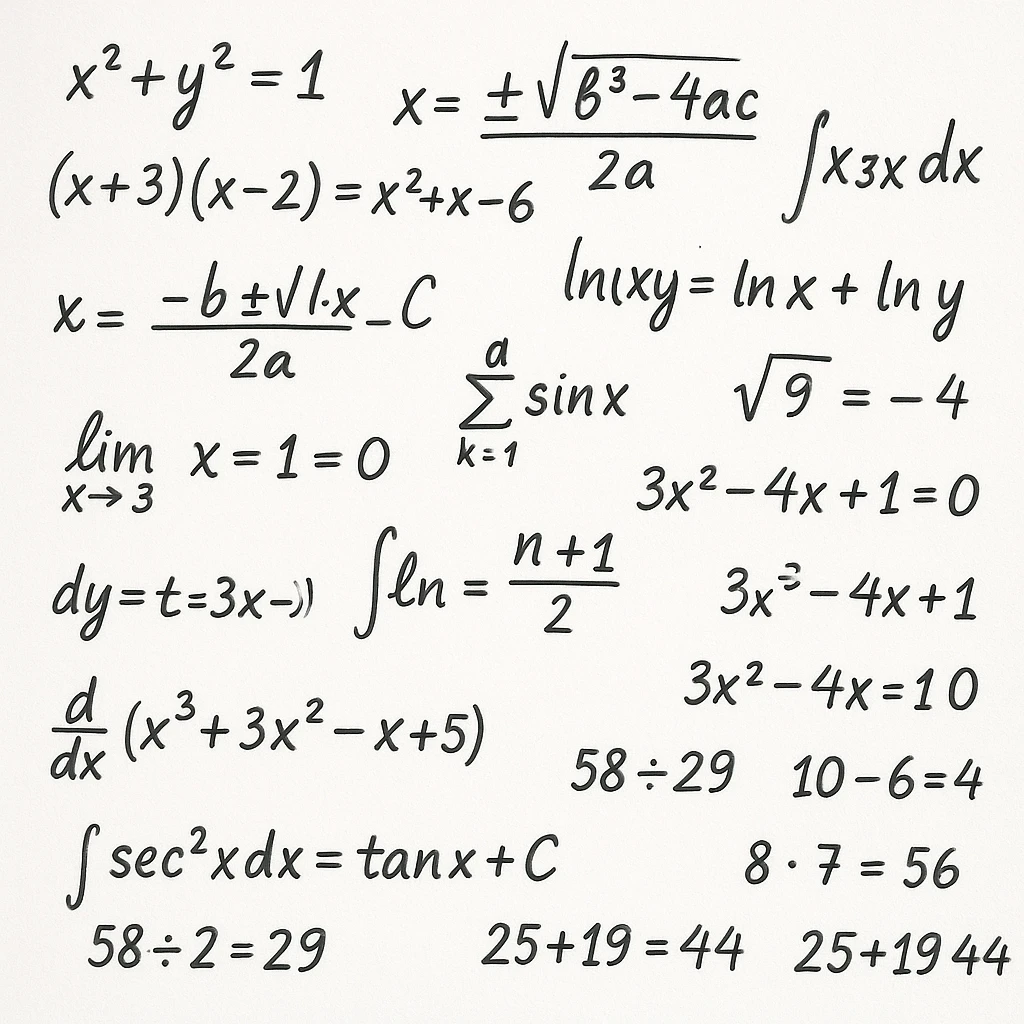 x² + y² = 1
x = ±√(b³ − 4ac) / 2a
∫x3x dx
(x + 3)(x − 2) = x² + x − 6
x = (−b ± √1·x) / 2a − C
ln(xy = ln x + ln y
d
∑ sin x
k = 1
√9 = − 4
lim x = 1 = 0
x → 3
3x² − 4x + 1 = 0
dy = t = 3x −
∫ln = (n + 1) / 2
3x³ − 4x + 1
3x² − 4x = 10
d/dx (x³ + 3x² − x + 5)
58 ÷ 29
10 − 6 = 4
∫ sec² x dx = tan x + C
8 · 7 = 56
58 ÷ 2 = 29
25 + 19 = 44
25 + 19 44